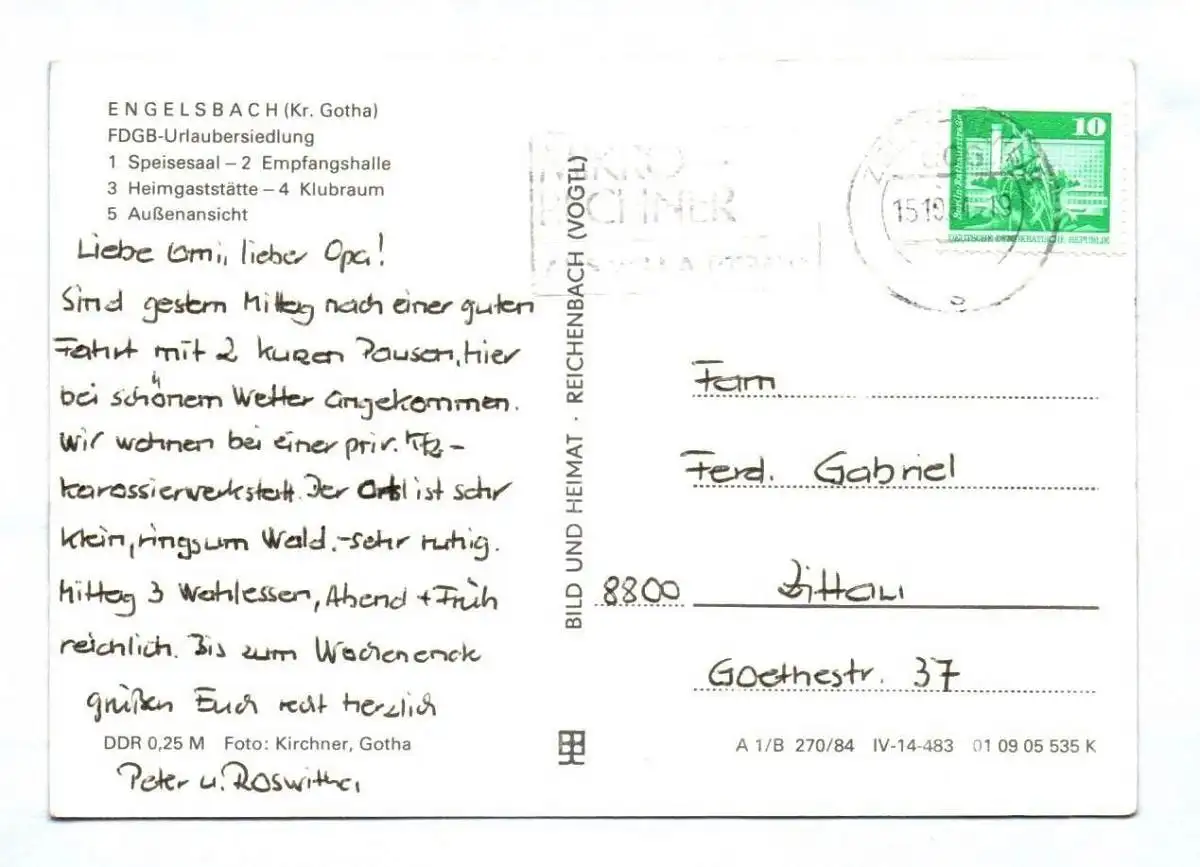 ENGELSBACH (Kr. Gotha)
FDGB-Urlaubersiedlung
1 Speisesaal – 2 Empfangshalle
3 Heimgaststätte – 4 Klubraum
5 Außenansicht
Liebe Omi, lieber Opa!
Sind gestern Mittag nach einer guten
Fahrt mit 2 kurzen Pausen, hier
bei schönem Wetter angekommen.
Wir wohnen bei einer priv. Kfz-
karossierwerkstatt. Der Ort ist sehr
klein, ringsum Wald. – sehr ruhig.
Mittag 3 Wahlessen, Abend + Früh
reichlich. Bis zum Wochenende
grüßen Euch recht herzlich
Peter u. Roswitha
DDR 0,25 M Foto: Kirchner, Gotha
BILD UND HEIMAT · REICHENBACH (VOGTL)
MIKRO-
RECHNER
10
Berlin-Rathausstraße
DEUTSCHE DEMOKRATISCHE REPUBLIK
Fam.
Ferd. Gabriel
8800 Zittau
Goethestr. 37
A 1/B 270/84 IV-14-483 01 09 05 535 K